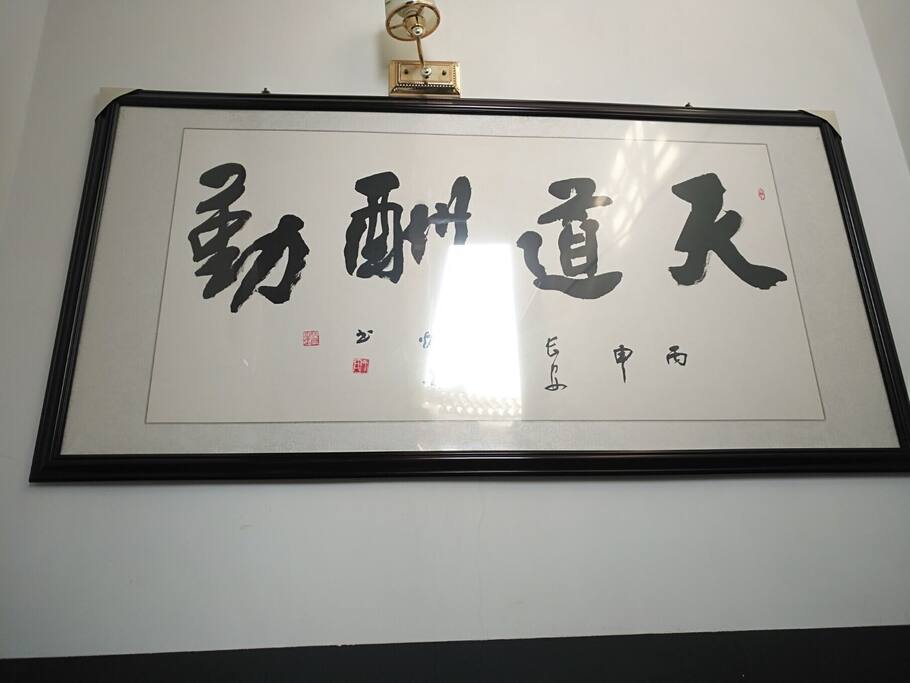 天道酬勤
丙申 长安 书